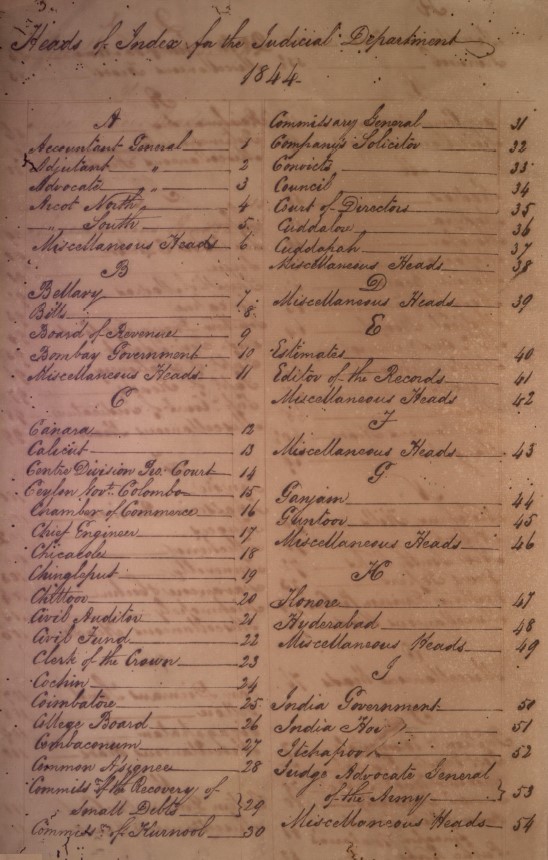 Heads of Index for the Judicial Department
1844
A
Accountant General 1
Adjutant " 2
Advocate " " 3
Arcot North " 4
" South " 5
Miscellaneous Heads 6
B
Bellary 7
Bills 8
Board of Revenue 9
Bombay Government 10
Miscellaneous Heads 11
C
Canara 12
Calicut 13
Centre Division Pro. Court 14
Ceylon Govt. Colombo 15
Chamber of Commerce 16
Chief Engineer 17
Chicacole 18
Chingleput 19
Chittoor 20
Civil Auditor 21
Civil Fund 22
Clerk of the Crown 23
Cochin 24
Coimbatore 25
College Board 26
Combaconum 27
Common Assignee 28
Commitee of the Recovery of
Small Debts } 29
Commissr. of Kurnool 30
Commissary General 31
Company's Solicitor 32
Convicts 33
Council 34
Court of Directors 35
Cuddalore 36
Cuddapah 37
Miscellaneous Heads 38
D
Miscellaneous Heads 39
E
Estimates 40
Editor of the Records 41
Miscellaneous Heads 42
F
Miscellaneous Heads 43
G
Ganjam 44
Guntoor 45
Miscellaneous Heads 46
H
Honore 47
Hyderabad 48
Miscellaneous Heads 49
I
India Government 50
India Hon 51
Itchapoor 52
Judge Advocate General
of the Army } 53
Miscellaneous Heads 54